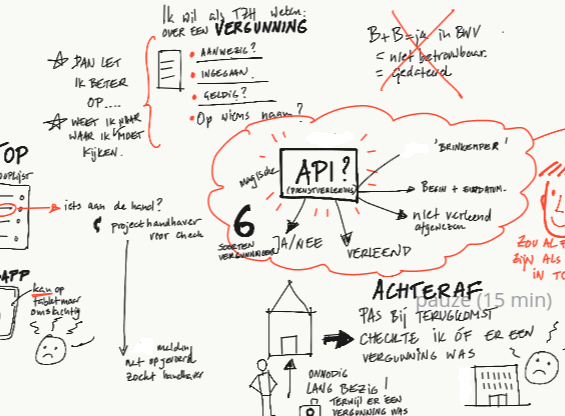 Ik wil als TZH weten:
OVER EEN VERGUNNING
• AANWEZIG?
• INGEGAAN.
• GELDIG?
• Op wiens naam?
DAN LET
IK BETER
OP....
WEET IK NAAR
WAAR IK MOET
KIJKEN.
B+B = ja in BWV
= niet betrouwbaar.
= gedateerd
magische
API?
(DIENSTVERLENING)
'BRINKEMPER'
BEGIN + EINDDATUM.
niet verleend
afgewezen
6
SOORTEN
VERGUNNINGEN
JA/NEE
VERLEEND
TOP
iets aan de hand?
projecthandhaver
voor check
melding
niet opgevoerd
zocht handhaver
APP
kan op
tablet maar
omslachtig
ZOU AL
ZIJN ALS
IN TO
ACHTERAF
pauze (15 min)
PAS BIJ TERUGKOMST
CHECKTE IK OF ER EEN
VERGUNNING WAS
ONNODIG
LANG BEZIG!
TERWIJL ER EEN
VERGUNNING WAS